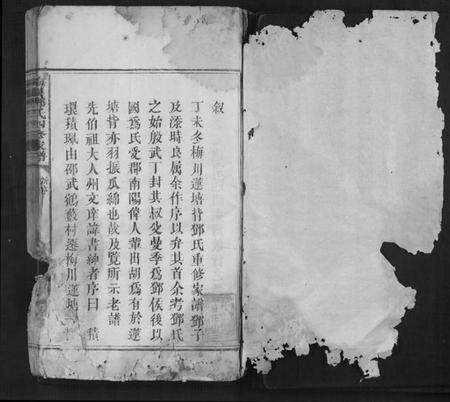 叙
丁未冬梅川蓮塘背鄧氏重修家譜鄧子
及漆時良属余作序以弁其首余考鄧氏
之始殷武丁封其叔父曼季爲鄧侯後以
國爲氏爰郡南陽偉人輩出胡爲有於蓮
塘背亦羽振瓜綿也故及覧所示老譜
先伯祖大人州文庠諱書紳者序曰 積
環積珮由邵武鶴藪村遷梅川蓮塘
鄧氏四修家譜